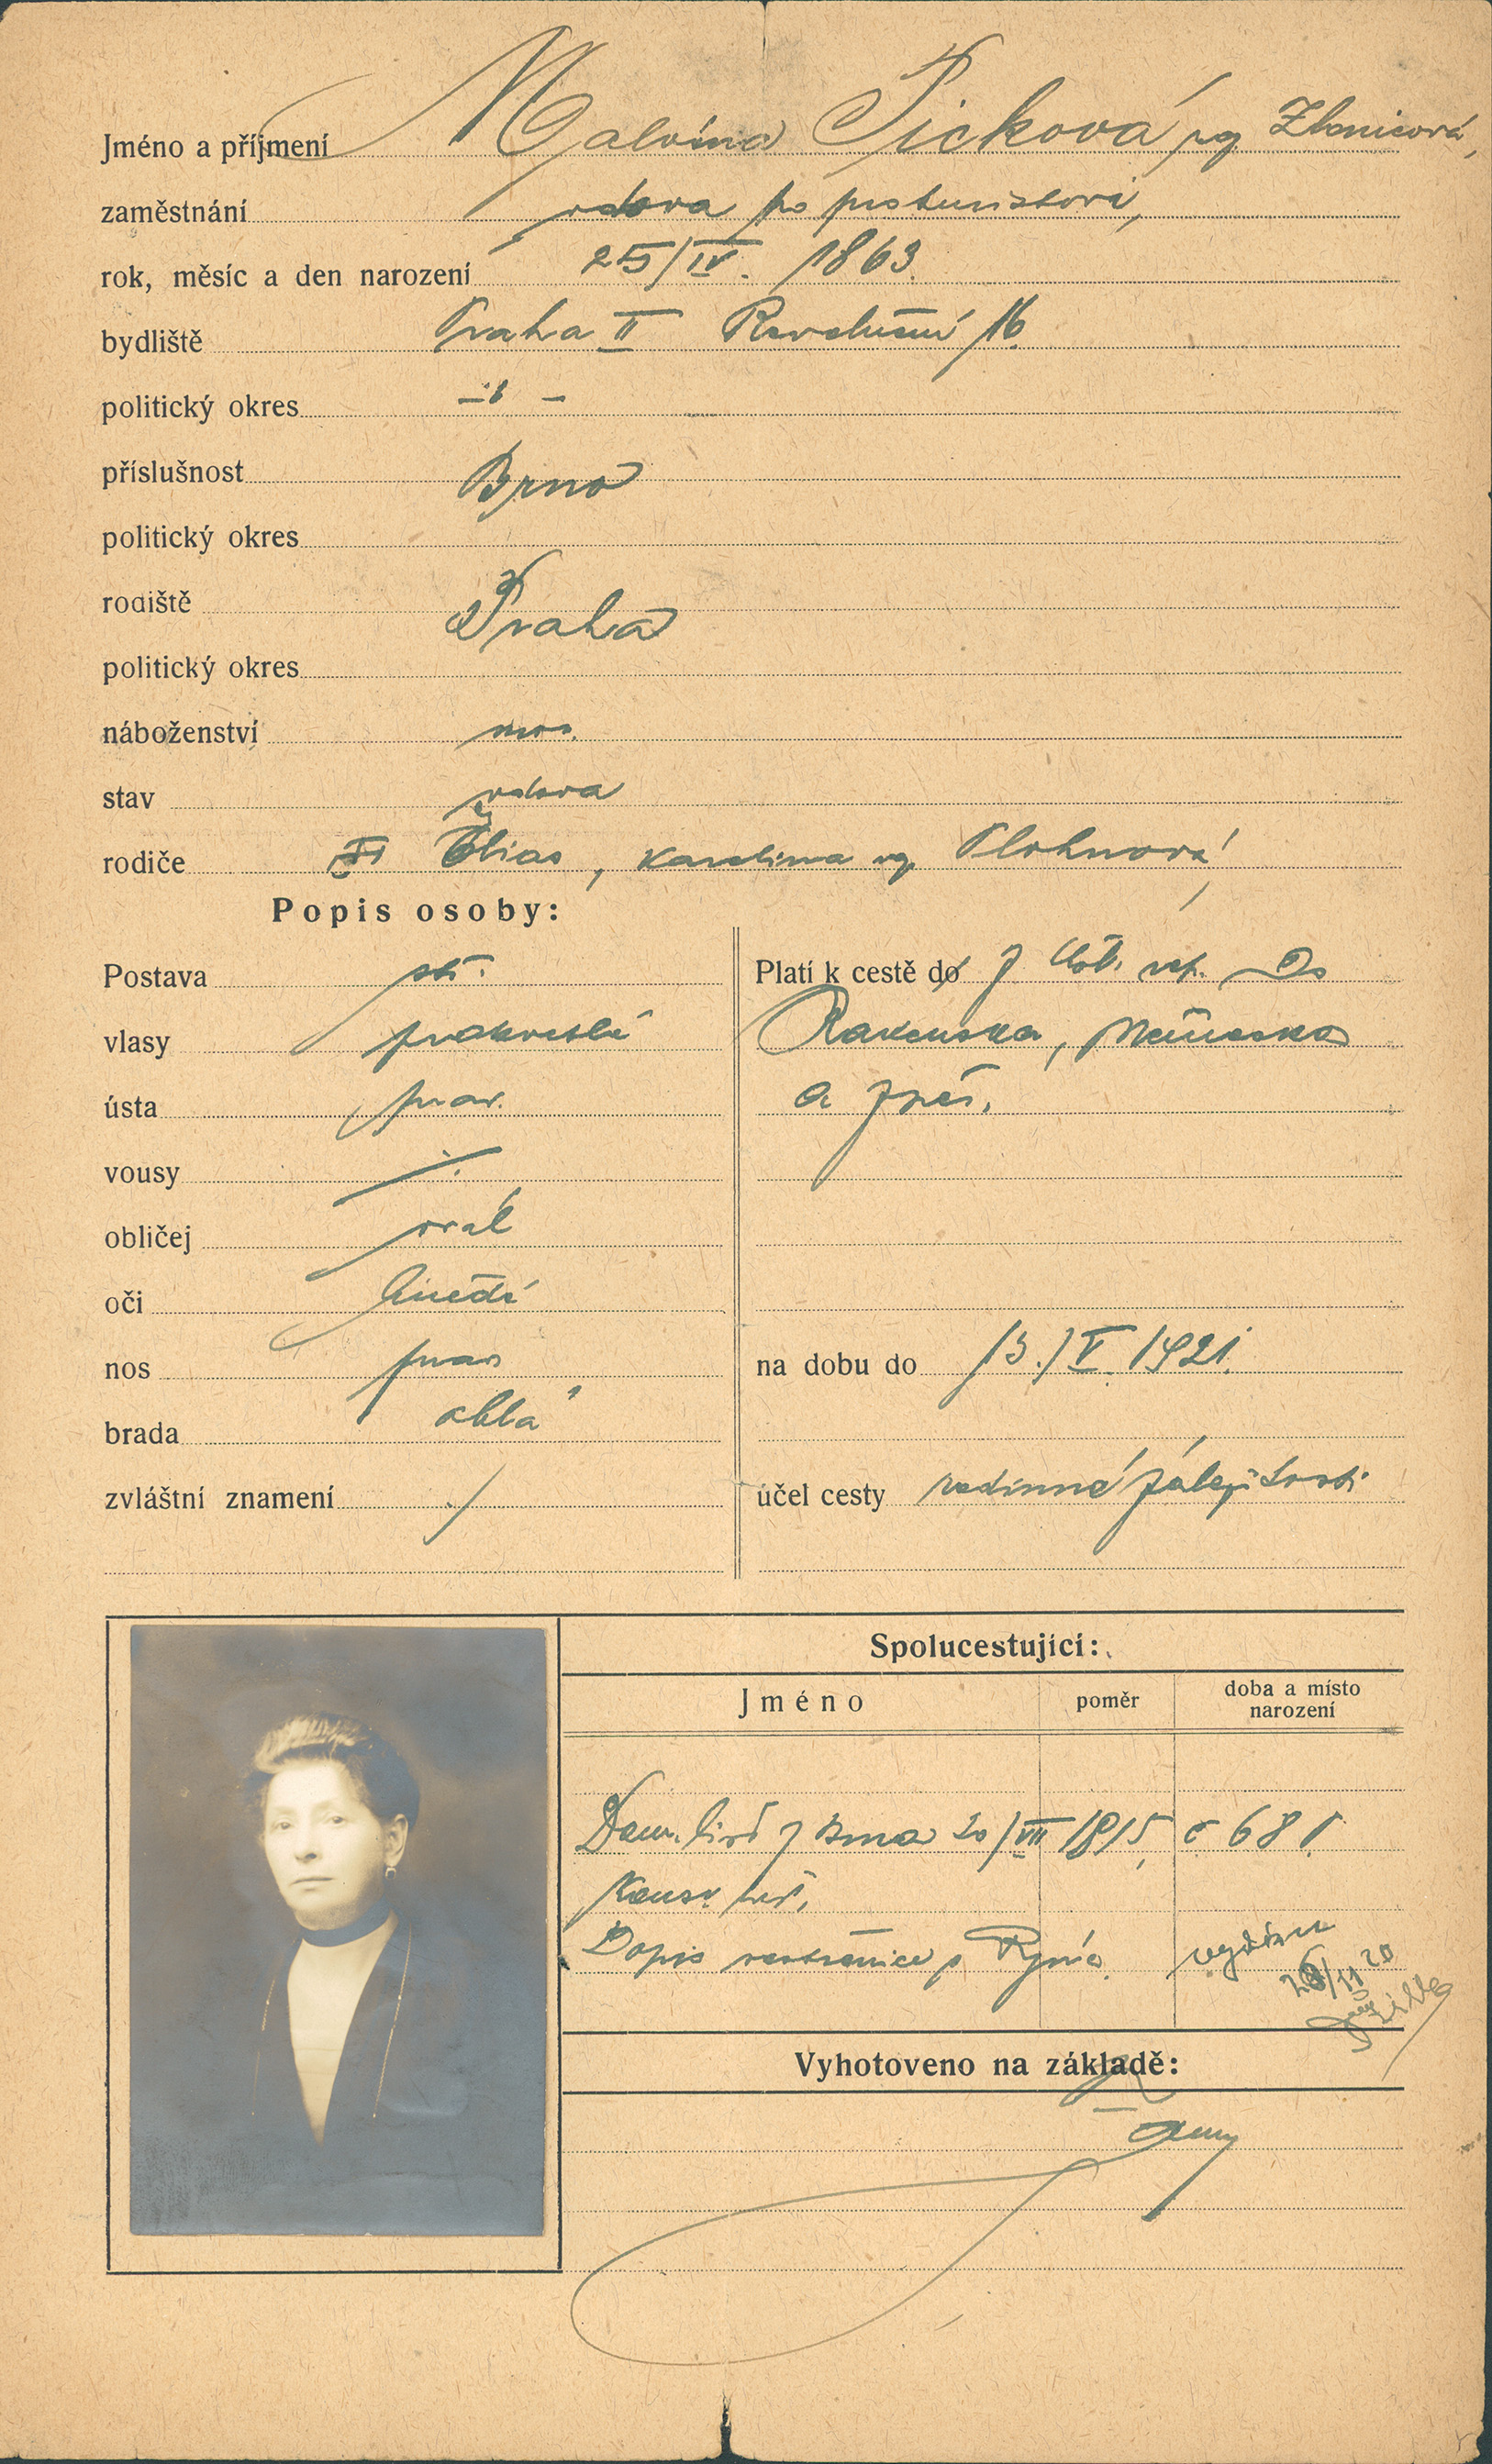 Jméno a příjmení Malvína Picková roz. Zbonicová,
zaměstnání vdova po prokuristovi,
rok, měsíc a den narození 25/IV. 1863.
bydliště Praha II Revoluční 16.
politický okres
příslušnost Brno
politický okres
rodiště Praha
politický okres
náboženství mos.
stav vdova
rodiče Elias, Karolina roz.
Popis osoby:
Postava stř.
vlasy prokvetlé
ústa prav.
vousy ./.
obličej ovál
oči hnědé
nos prav
brada oblá
zvláštní znamení ./
Platí k cestě do z Čsl. rep. Do
Rakouska, Německa
a zpět.
na dobu do 13./V. 1921.
účel cesty rodinné záležitosti
Spolucestující:
Jméno poměr doba a místo narození
Dom. list z Brna 20/VII 1915, č 681.
Dopis sestřenice z
26/11 20
Vyhotoveno na základě: